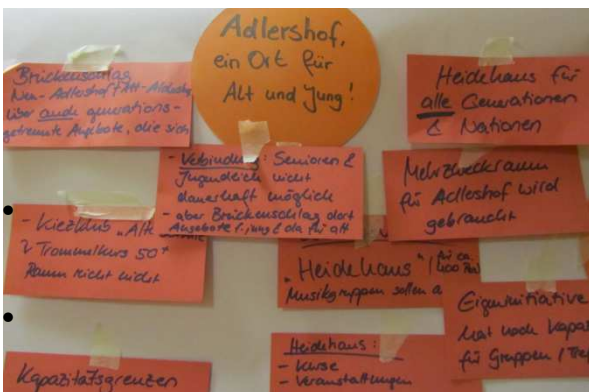 Adlershof,
ein Ort für
Alt und Jung!
Brückenschlag
Neu-Adlershof/Alt-
über auch generations-
getrennte Angebote, die sich
Heidehaus für
alle Generationen
& Nationen
- Verbindung: Senioren &
Jugendlich nicht
dauerhaft möglich
- aber Brückenschlag dort
Angebote f. jung & da für alt
Mehrzweckraum
für Adlershof wird
gebraucht
- Kiezklub "Alt
Trommelkurs 50+
Raum reicht nicht
"Heidehaus" / für ca.
Musikgruppen sollen
Eigeninitiative
hat noch
für Gruppen /
Kapazitätsgrenzen
Heidehaus:
- Kurse
- Veranstaltungen